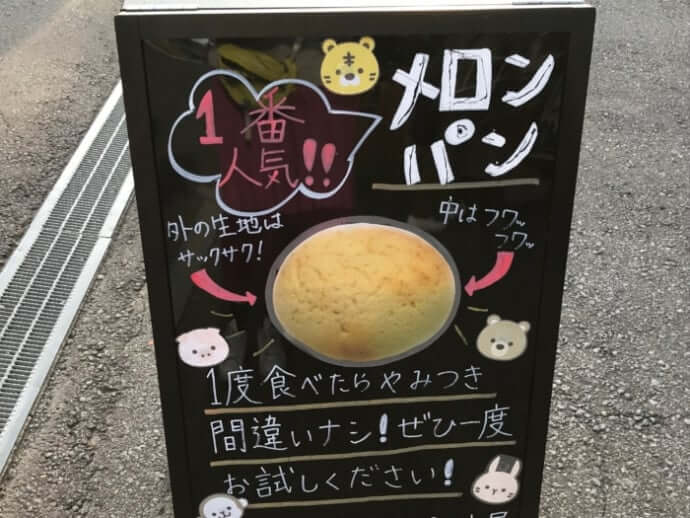 1番
人気!!
メロン
パン
外の生地は
サックサク!
中はフワッ
フワッ
1度食べたらやみつき
間違いナシ!ぜひ一度
お試しください!